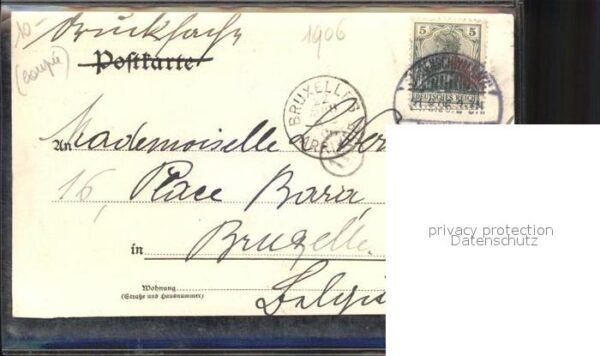 10.-
Drucksache
1906
(coupé)
Postkarte
5
DEUTSCHES REICH
BRUXELLES
An Mademoiselle L.
16, Place Bara
in Bruxelle
Wohnung
(Straße und Hausnummer)
Belgi
privacy protection
Datenschutz